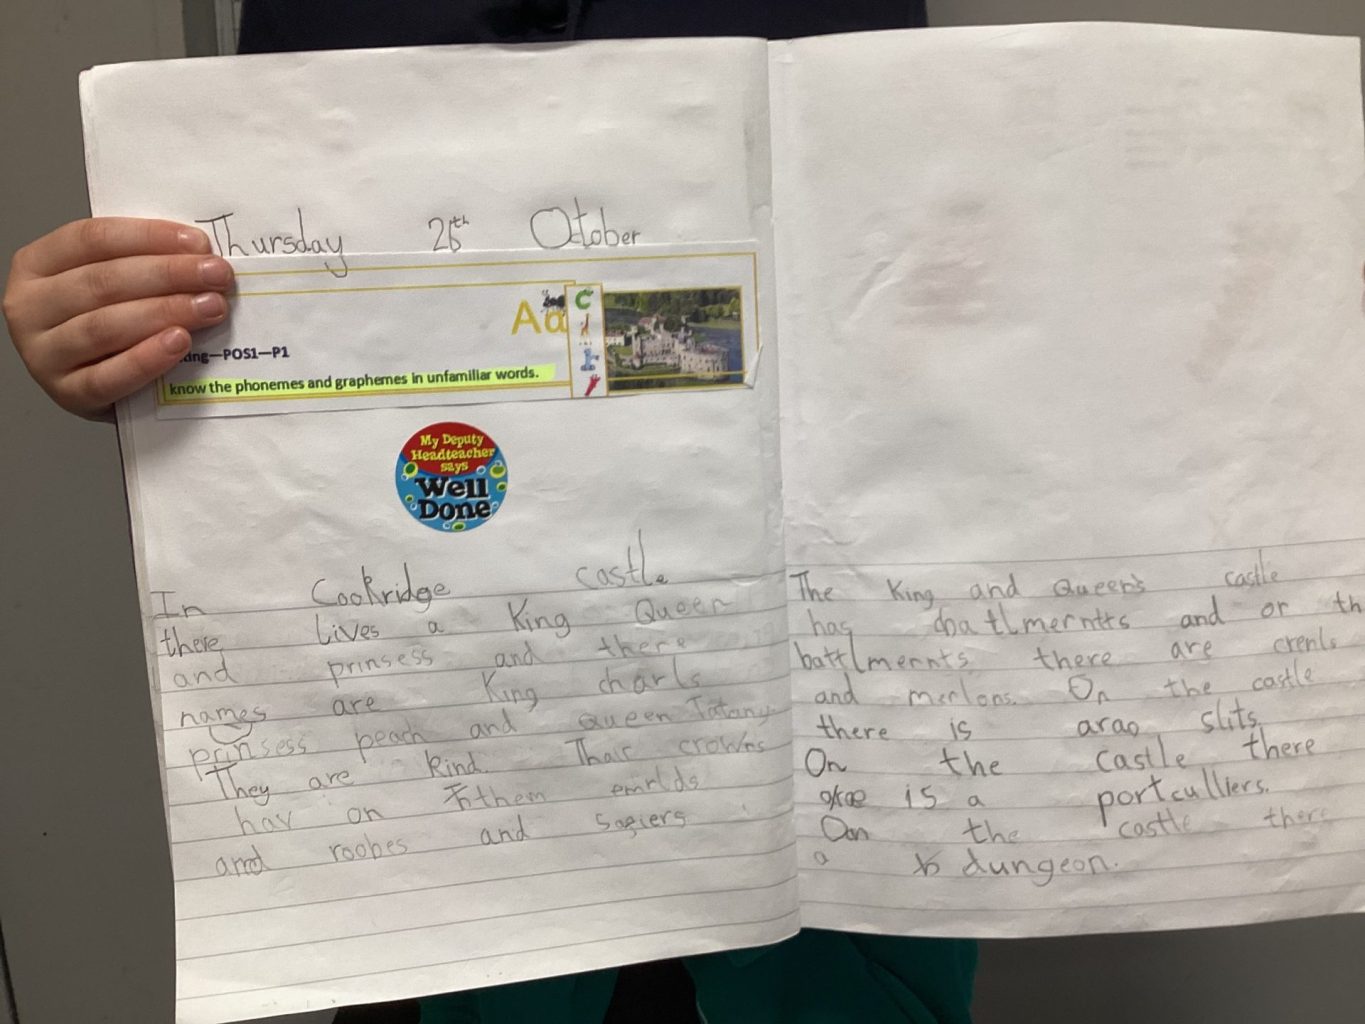 Thursday 26th October
Aa
ing—POS1—P1
know the phonemes and graphemes in unfamiliar words.
My Deputy
Headteacher
says
Well
Done
In Cookridge castle
there lives a King Queen
and prinsess and there
names are King charls
prinsess peach and Queen Tatany.
They are kind. Thair crowns
hav on them emrlds
and roobes and Safiers
The King and Queen's castle
has batlmernts and or th
battlmernts there are crenls
and merlons. On the castle
there is arao slits.
On the castle there
is a portculliers.
On the castle there
a dungeon.